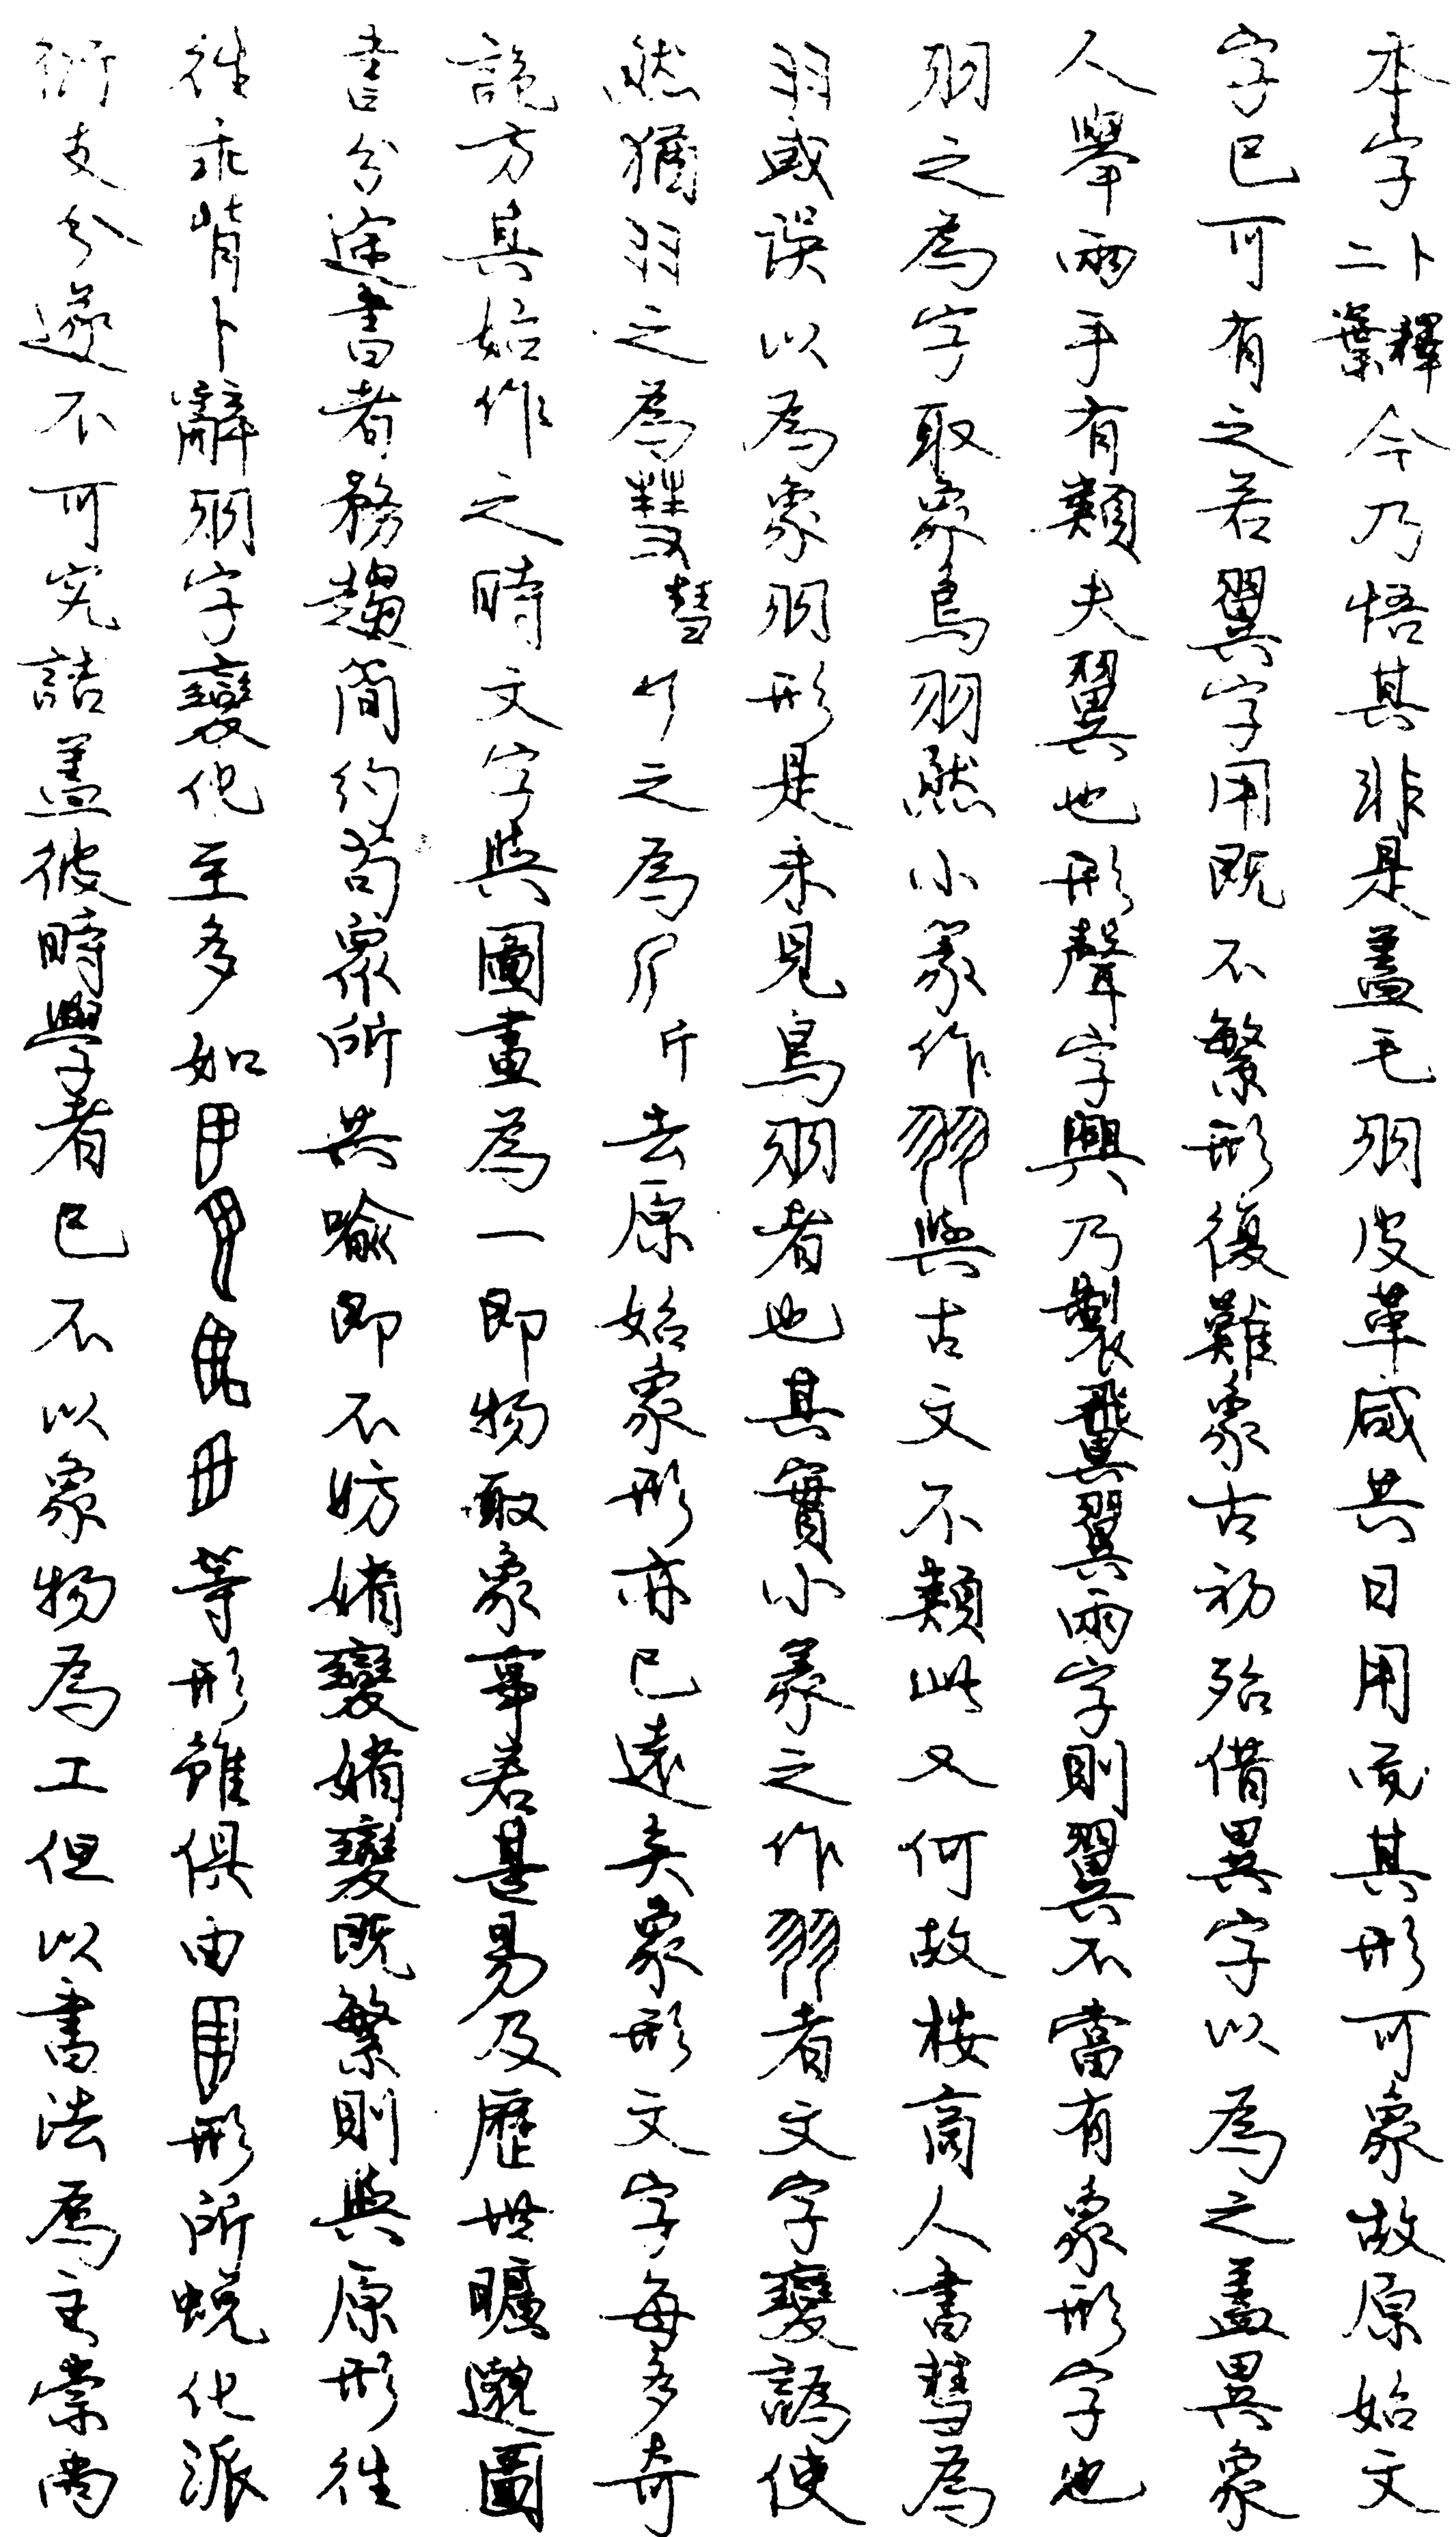 本字卜釋二葉今乃悟其非是蓋毛羽皮革咸共日用而其形可象故原始文
字已可有之若翼字用既不繁形復難象古初殆借異字以為之蓋異象
人舉兩手有類夫翼也形聲字興乃製𩙺翼兩字則翼不當有象形字也
羽之為字取象鳥羽然小篆作羽與古文不類此又何故按商人書彗為
羽或誤以為象羽形是未見鳥羽者也其實小篆之作羽者文字變譌使
然猶羽之為彗彗之為斤去原始象形亦已遠矣象形文字每多奇
詭方其始作之時文字與圖畫為一即物取象事若甚易及歷世曠邈圖
書分途書者務趨簡約苟眾所共喻即不妨媘變媘變既繁則與原形往
往乖背卜辭羽字變化至多如等形雖俱由形所蛻化派
衍支分遂不可究詰蓋彼時學者已不以象物為工但以書法為主崇尚